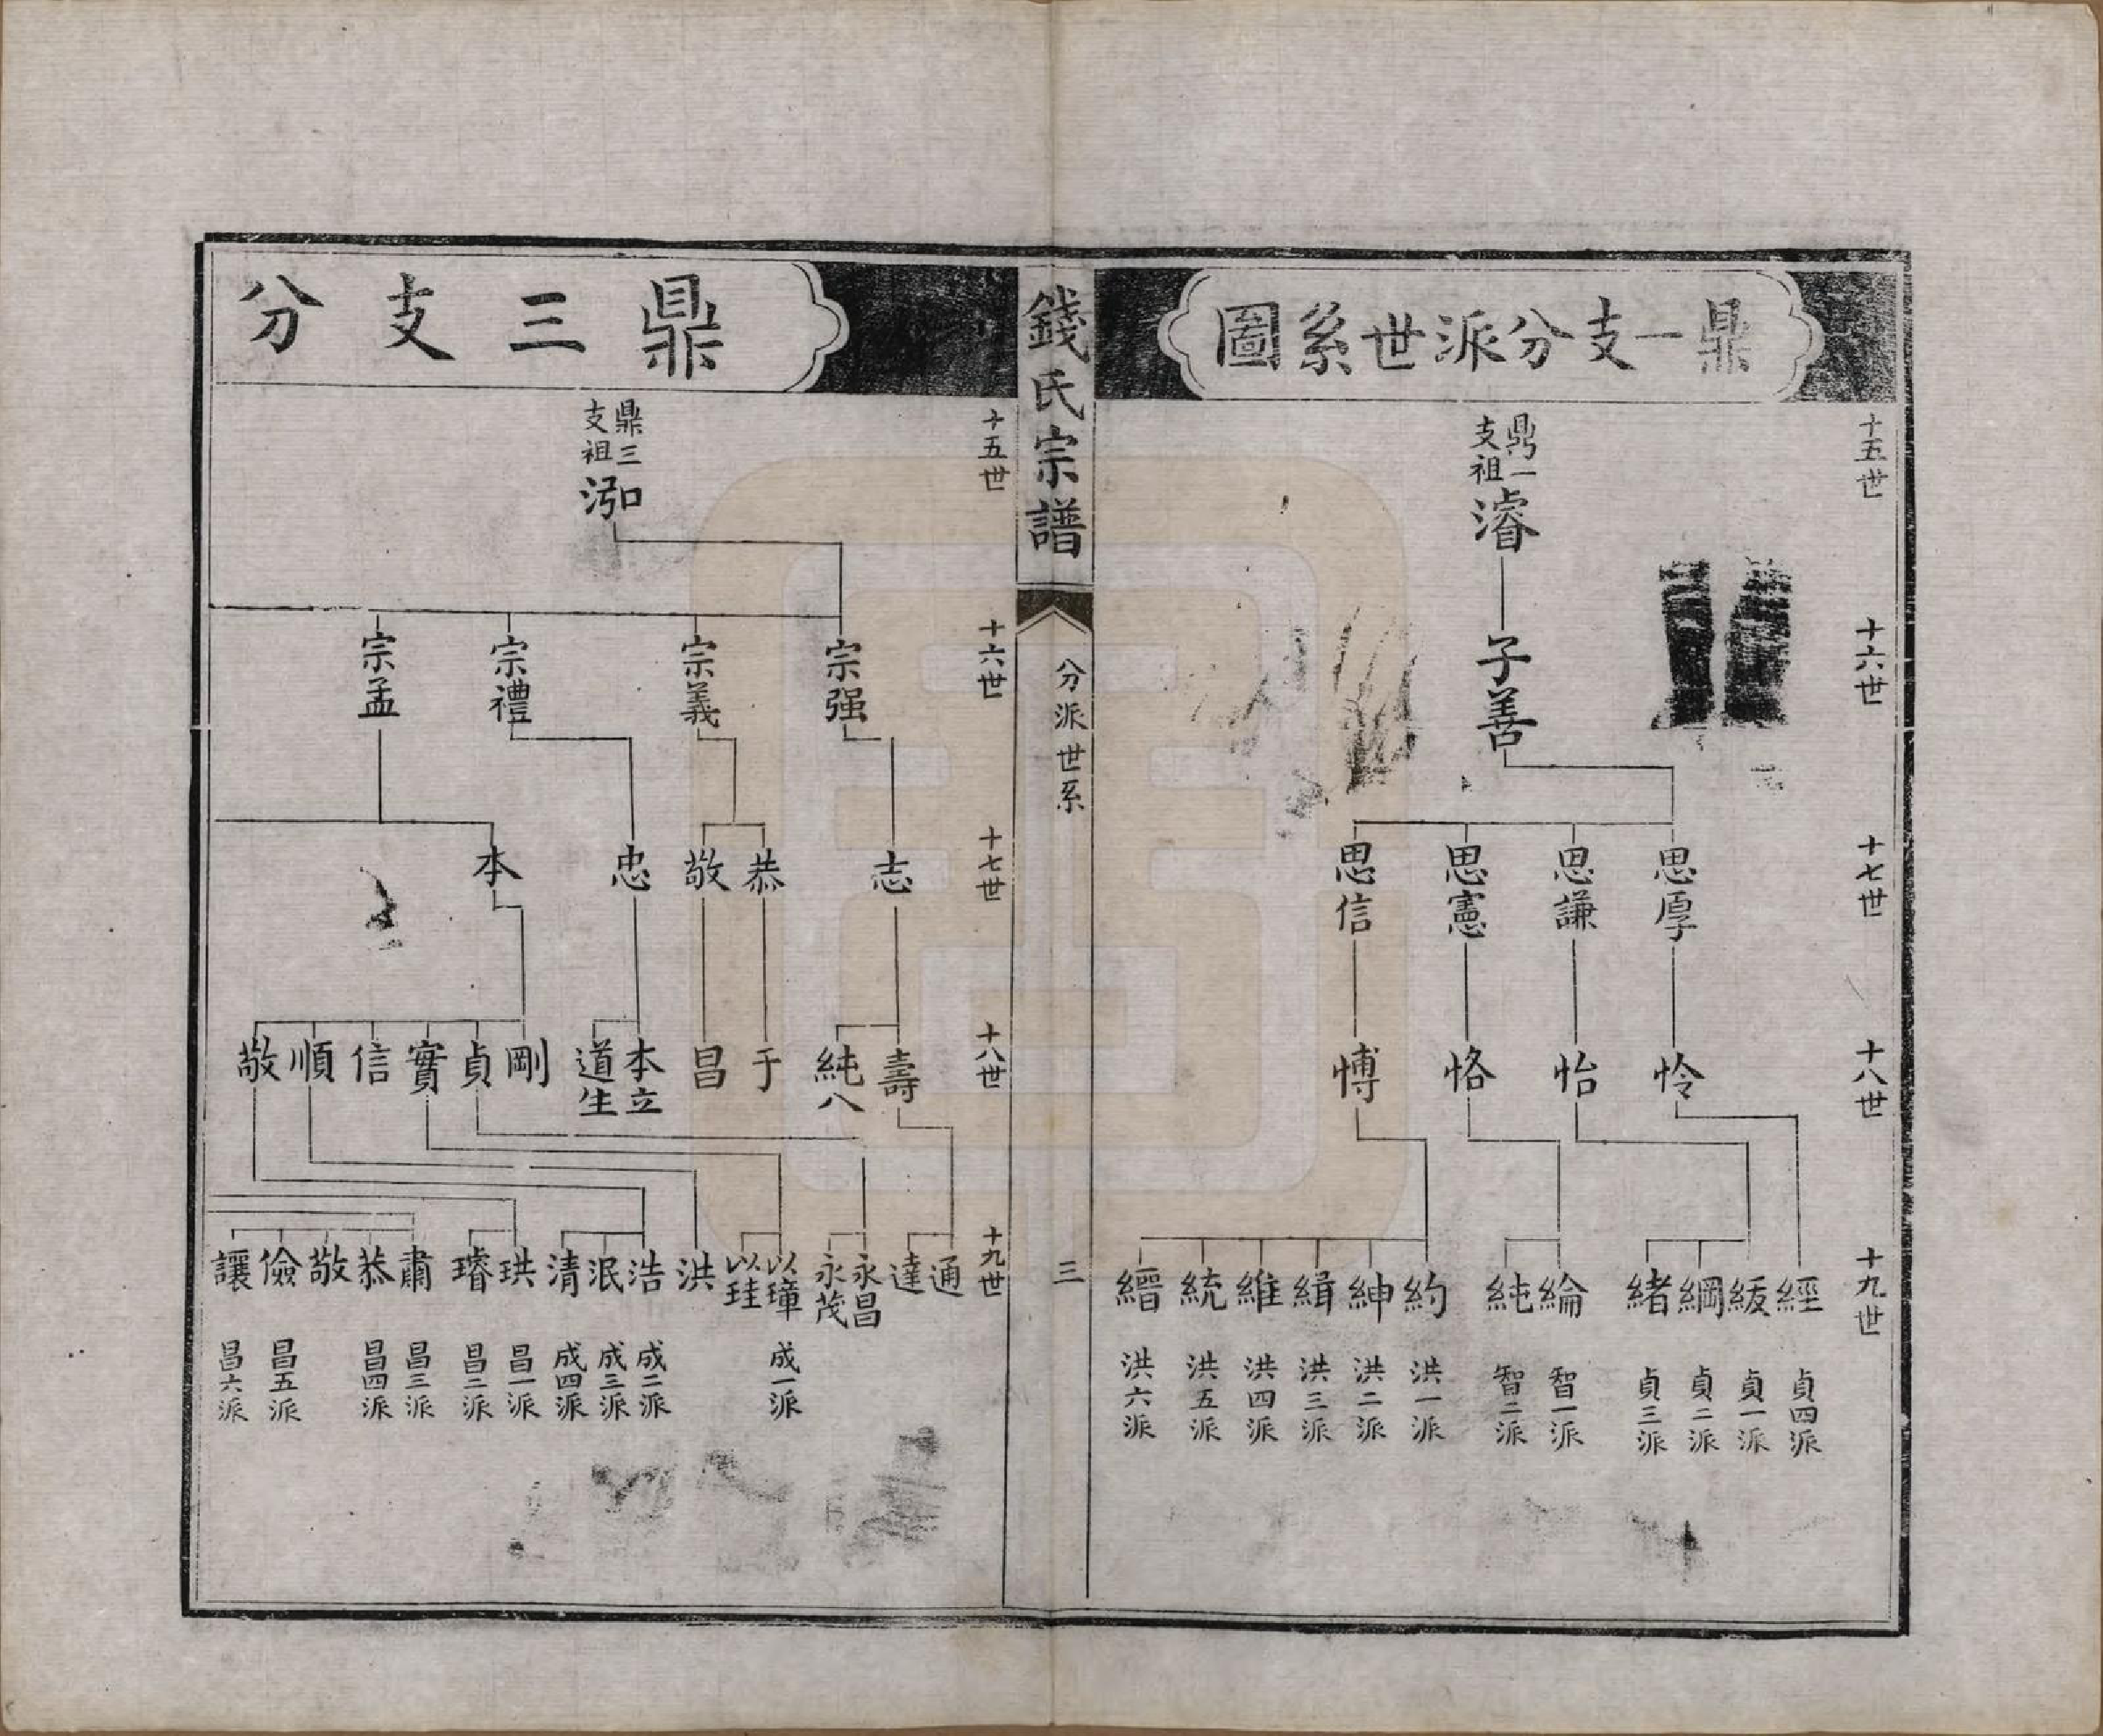 鼎一支分派世系圖
十五世
鼎一支祖
濬
十六世
子善
十七世
思厚
思謙
思憲
思信
十八世
怜
怡
恪
愽
十九世
經 貞四派
緩 貞一派
綱 貞二派
緒 貞三派
綸 智一派
純 智二派
約 洪一派
紳 洪二派
緝 洪三派
維 洪四派
統 洪五派
繒 洪六派
錢氏宗譜
分派世系
三
鼎三支分
十五世
鼎三支祖
泓
十六世
宗强
宗義
宗禮
宗孟
十七世
志
恭
敬
忠
本
十八世
壽
純八
于
昌
本立
道生
剛
貞
實
信
順
敬
十九世
通
達
永昌
永茂
以璋 成一派
以珪
洪
浩 成二派
泯 成三派
清 成四派
珙 昌一派
璿 昌二派
肅 昌三派
恭 昌四派
敬
儉 昌五派
讓 昌六派